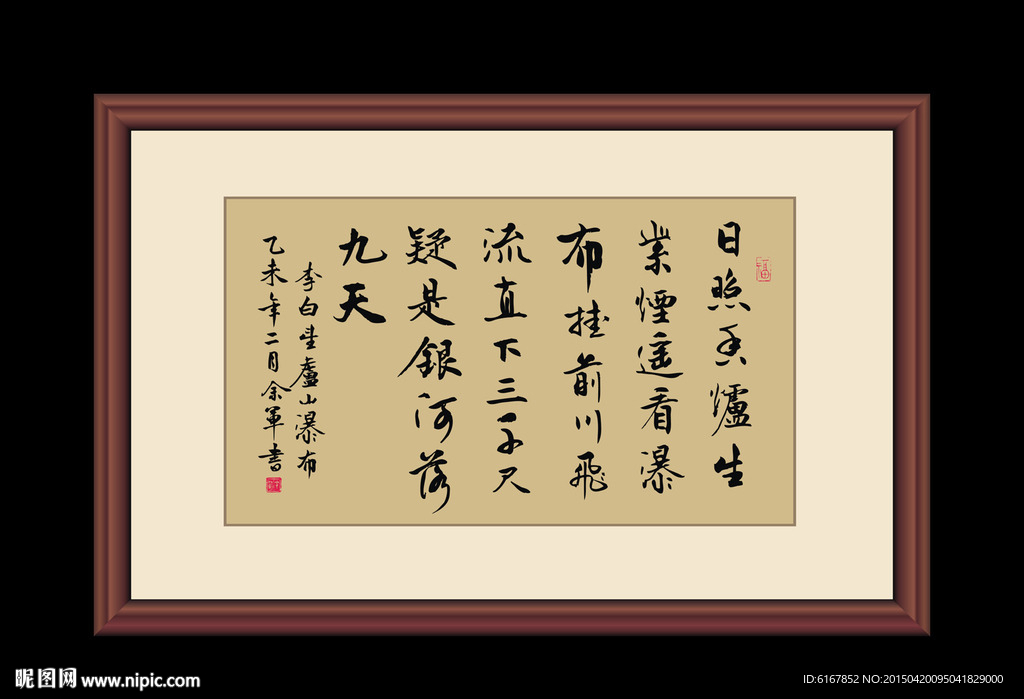 日照香爐生
紫煙遥看瀑
布挂前川飛
流直下三千尺
疑是銀河落
九天
李白望盧山瀑布
乙未年二月余軍書
昵图网 www.nipic.com
ID:6167852 NO:20150420095041829000